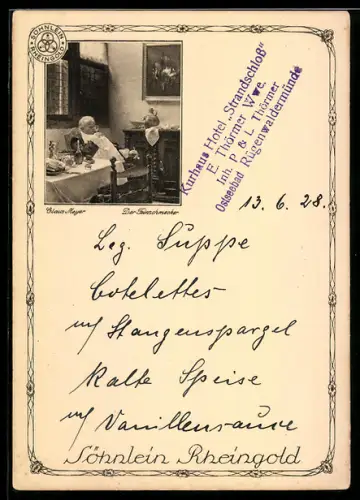 SÖHNLEIN
RHEINGOLD
Kurhaus Hotel „Strandschloß"
E. Thörmer Wwe.
Inh. P & L. Thörmer
Ostseebad Rügenwaldermünde
Claus Meyer Der Feinschmecker
13. 6. 28.
Leg. Suppe
Cotelettes
m/ Stangenspargel
Kalte Speise
m/ Vanillensauce
Söhnlein Rheingold